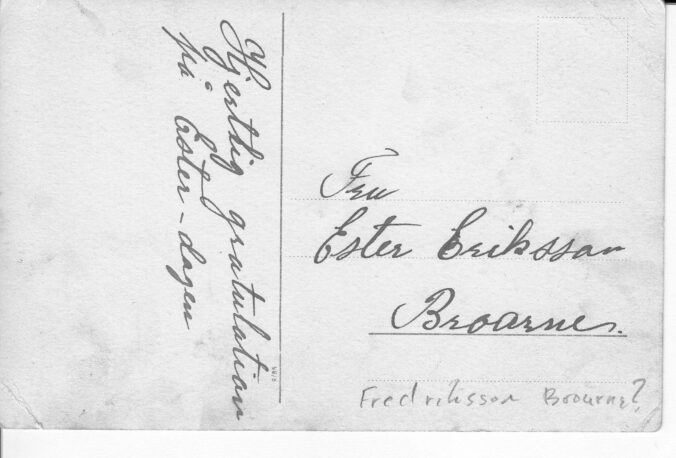 Hjertlig gratulation
på Ester-dagen
Fru
Ester Eriksson
Broarne.
Fredriksson Broarne?